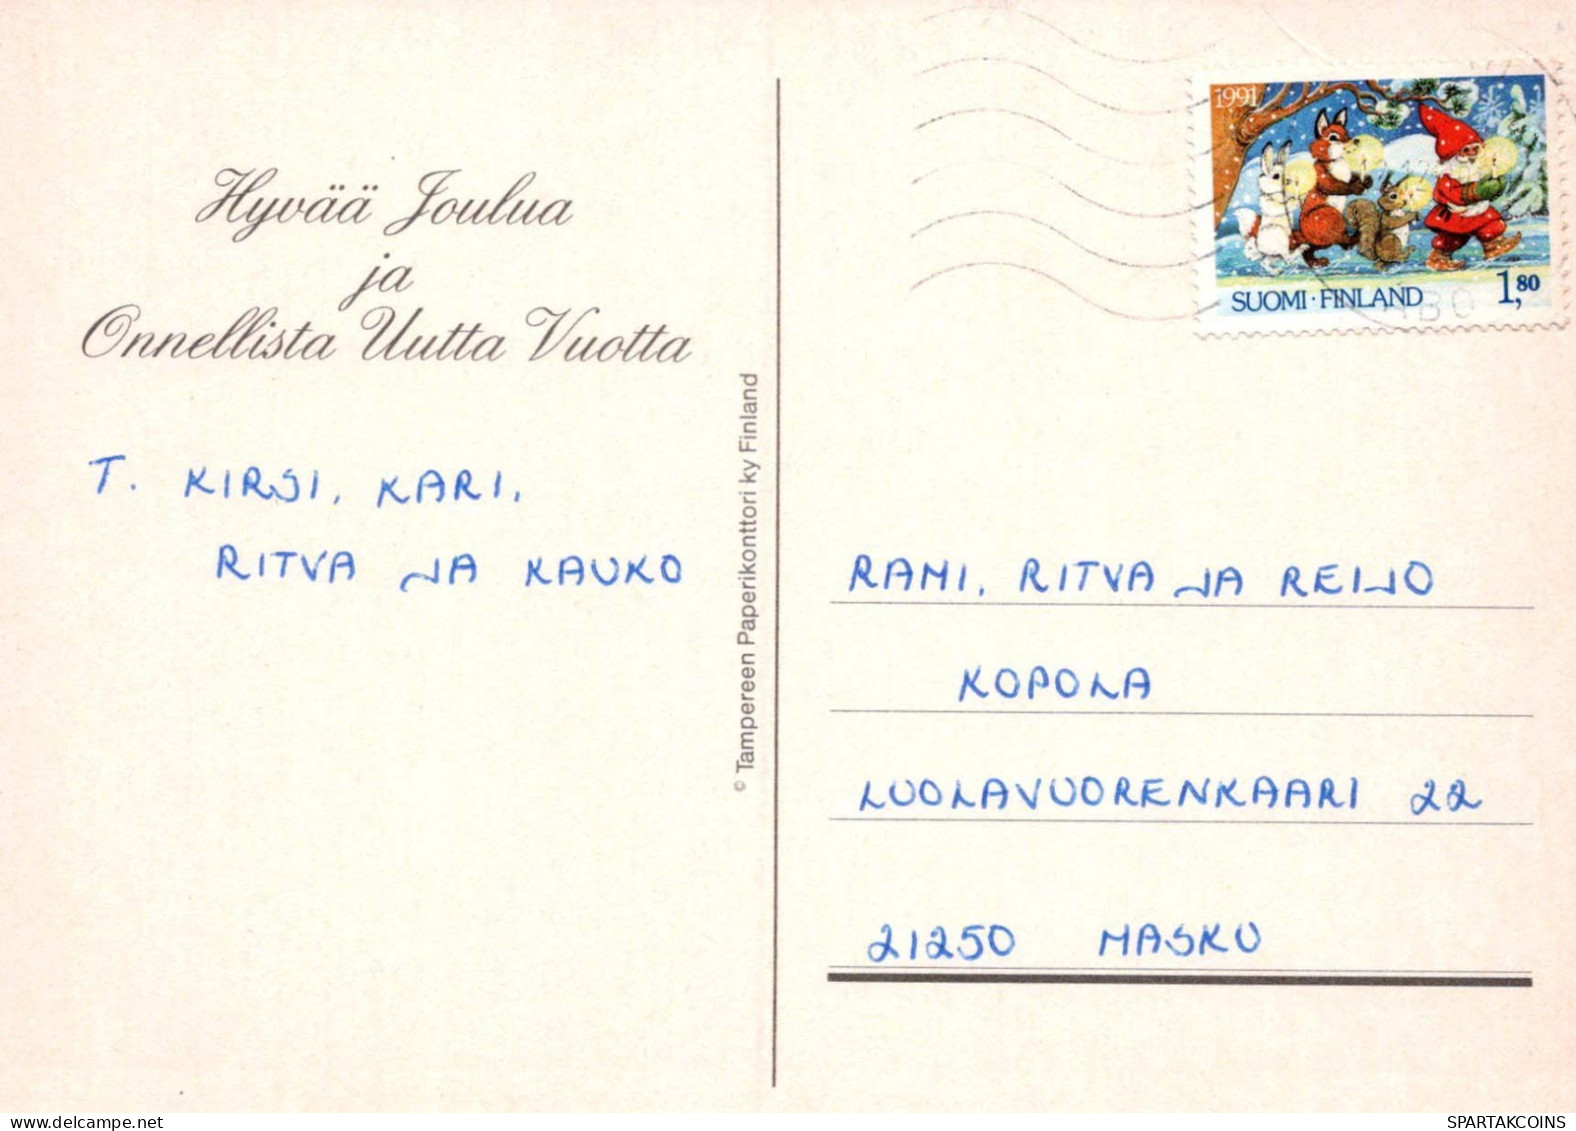 Hyvää Joulua
ja
Onnellista Uutta Vuotta
T. KIRSI, KARI,
RITVA JA KAUKO
© Tampereen Paperikonttori ky Finland
1991
SUOMI·FINLAND 1,80
RAMI, RITVA JA REIJO
KOPOLA
LUOLAVUORENKAARI 22
21250 MASKU
SPARTAKCOINS